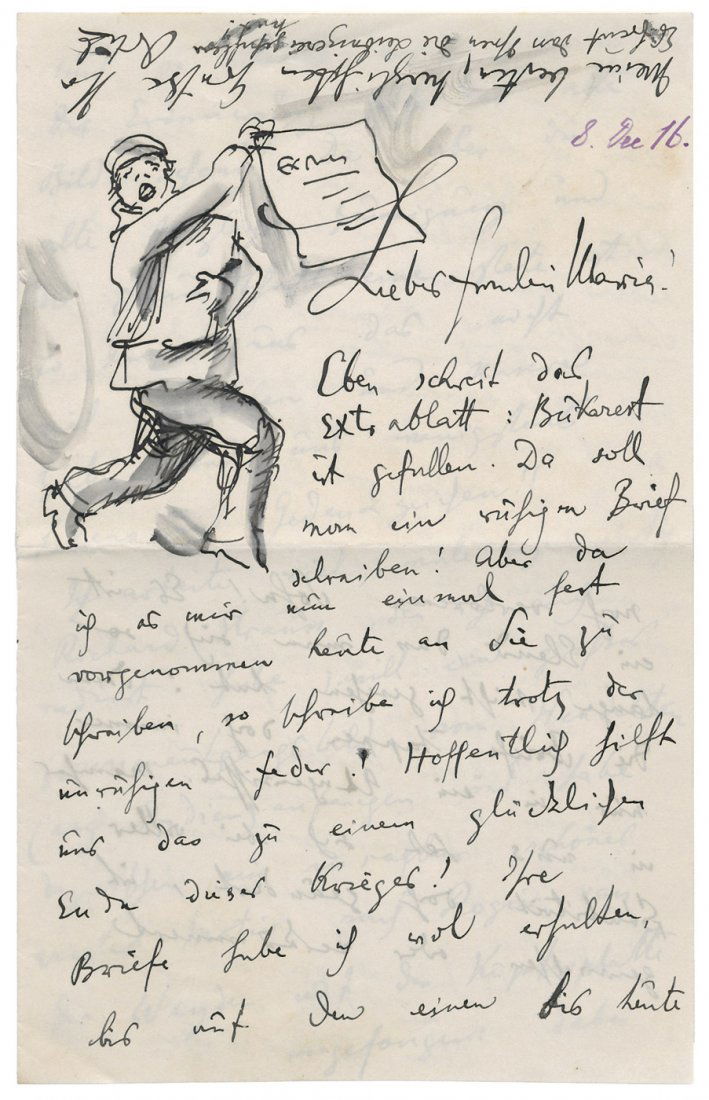 8. Dec 16.
Extra
Liebes Fraulein Maria!
Eben schreit das
Extrablatt : Bukarest
ist gefallen. Da soll
man ein ruhigen Brief
schreiben! Aber da
ich es mir nun einmal fest
vorgenommen heute an Sie zu
schreiben, so schreibe ich trotz der
unruhigen Feder! Hoffentlich hilft
uns das zu einem glücklichen
Ende dieses Krieges! Ihre
Briefe habe ich wol erhalten,
bis auf den einen bis heute
Meine besten, herzlichsten Grüsse Ihr
Es freut dass Ihnen die gefallen